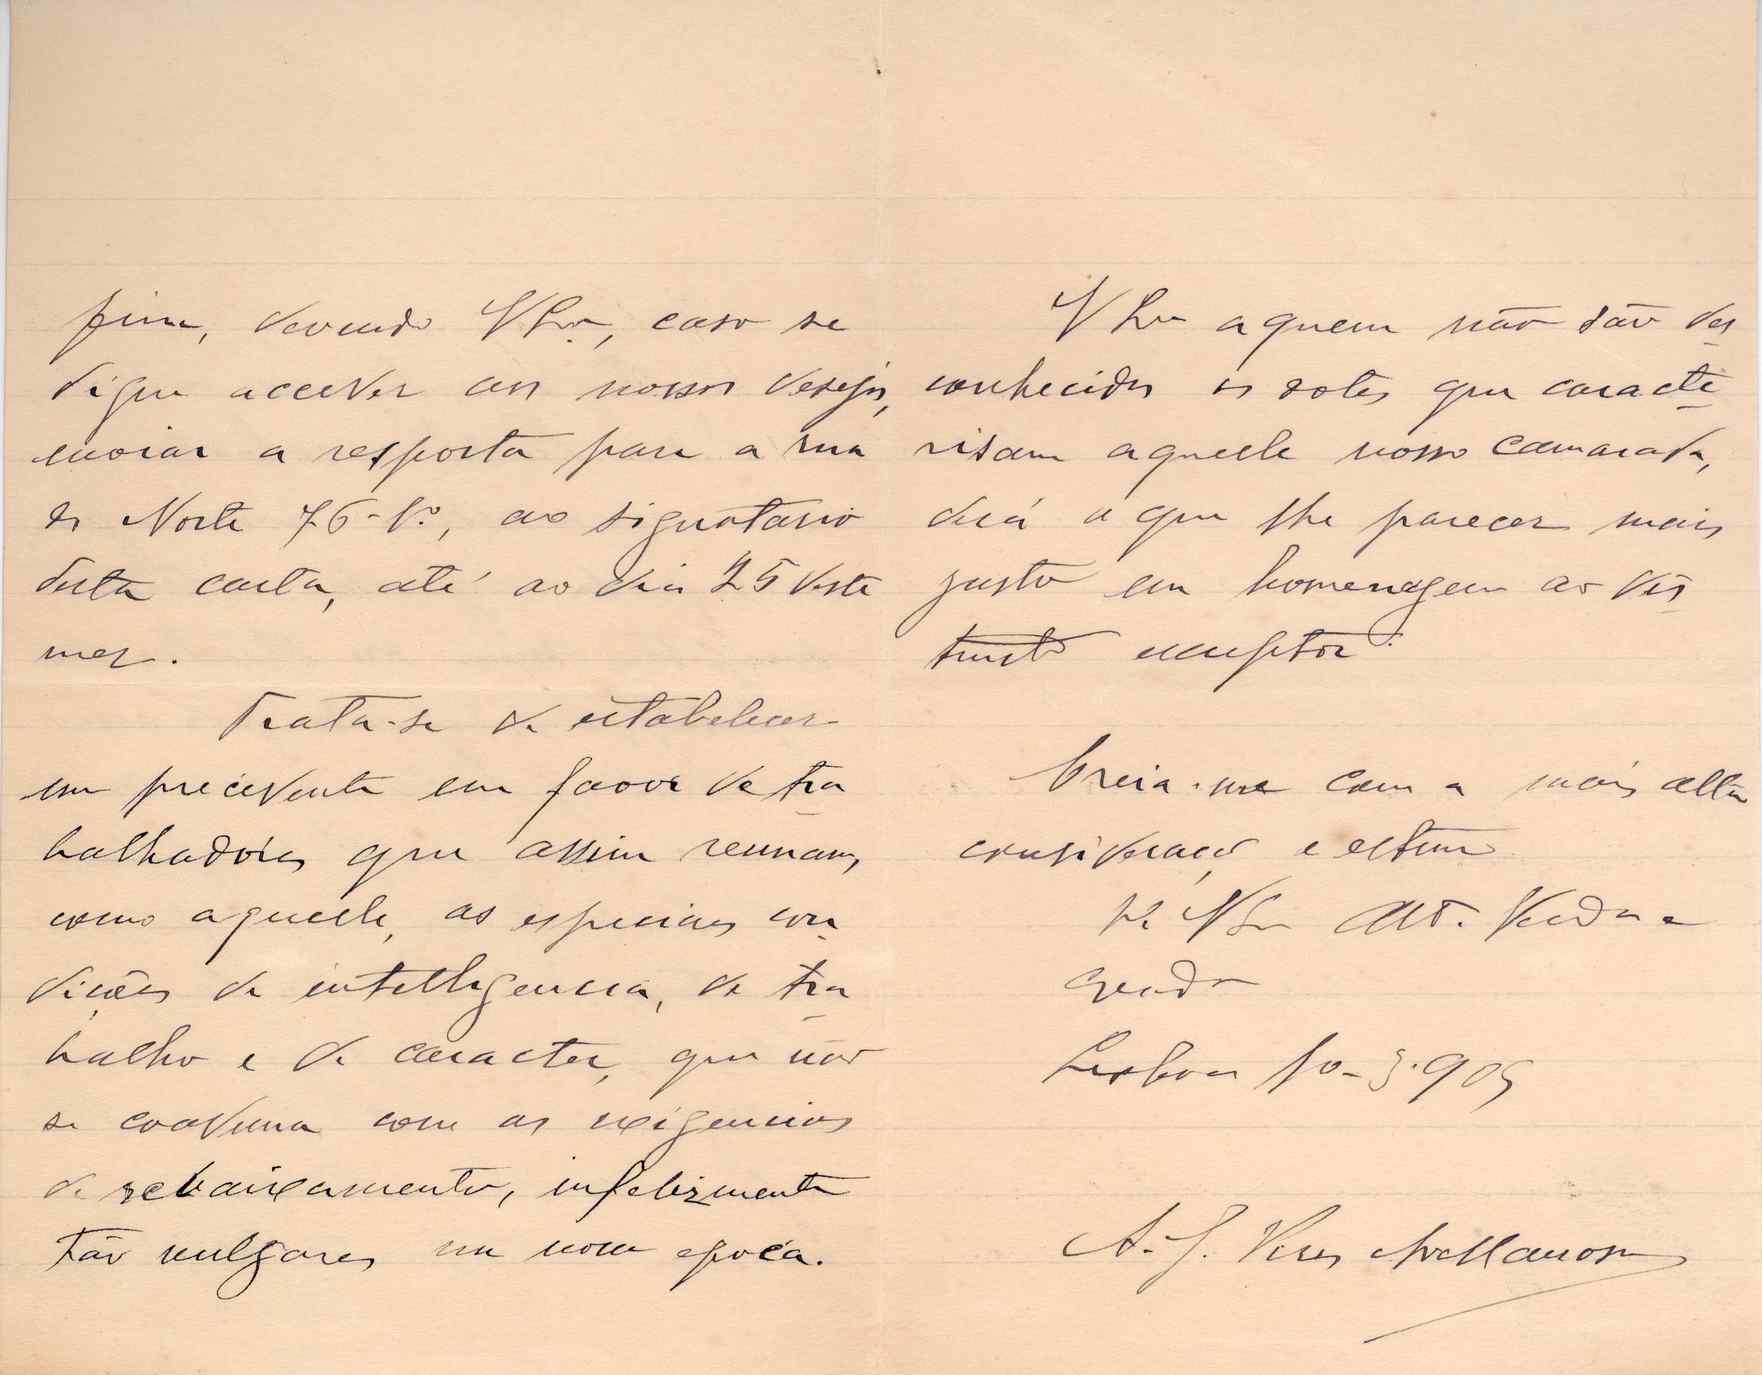 fim, devendo V Exª, caso se
digne acceder aos nossos desejos,
enviar a resposta para a rua
do Norte 76-1º, ao signatario
desta carta, até ao dia 25 deste
mez.
Trata-se de estabelecer
um precedente em favor de tra
balhadores que assim reunam,
como aquelle, as especiaes con
dições de intelligencia, de tra
balho e de caracter, que não
se coaduna com as exigencias
de rebaixamento, infelizmente
tão vulgares na nossa epoca.
V Exª a quem não são des
conhecidos os dotes que caracte
risam aquelle nosso camarada,
dirá o que lhe parecer mais
justo em homenagem ao dis
tincto esculptor.
Creia-me com a mais alta
consideração e estima
De V Exª Att. Vendor e
creado
Lisboa 10-3-905
A. J.